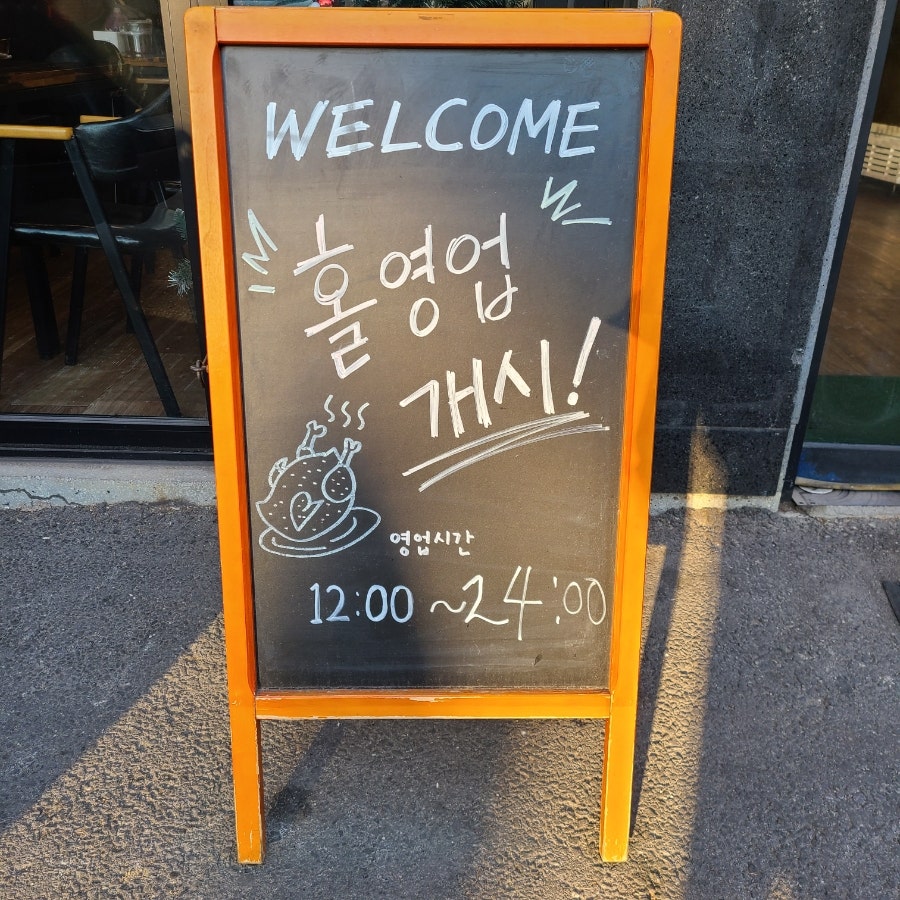 WELCOME
홀영업
개시!
영업시간
12:00 ~24:00